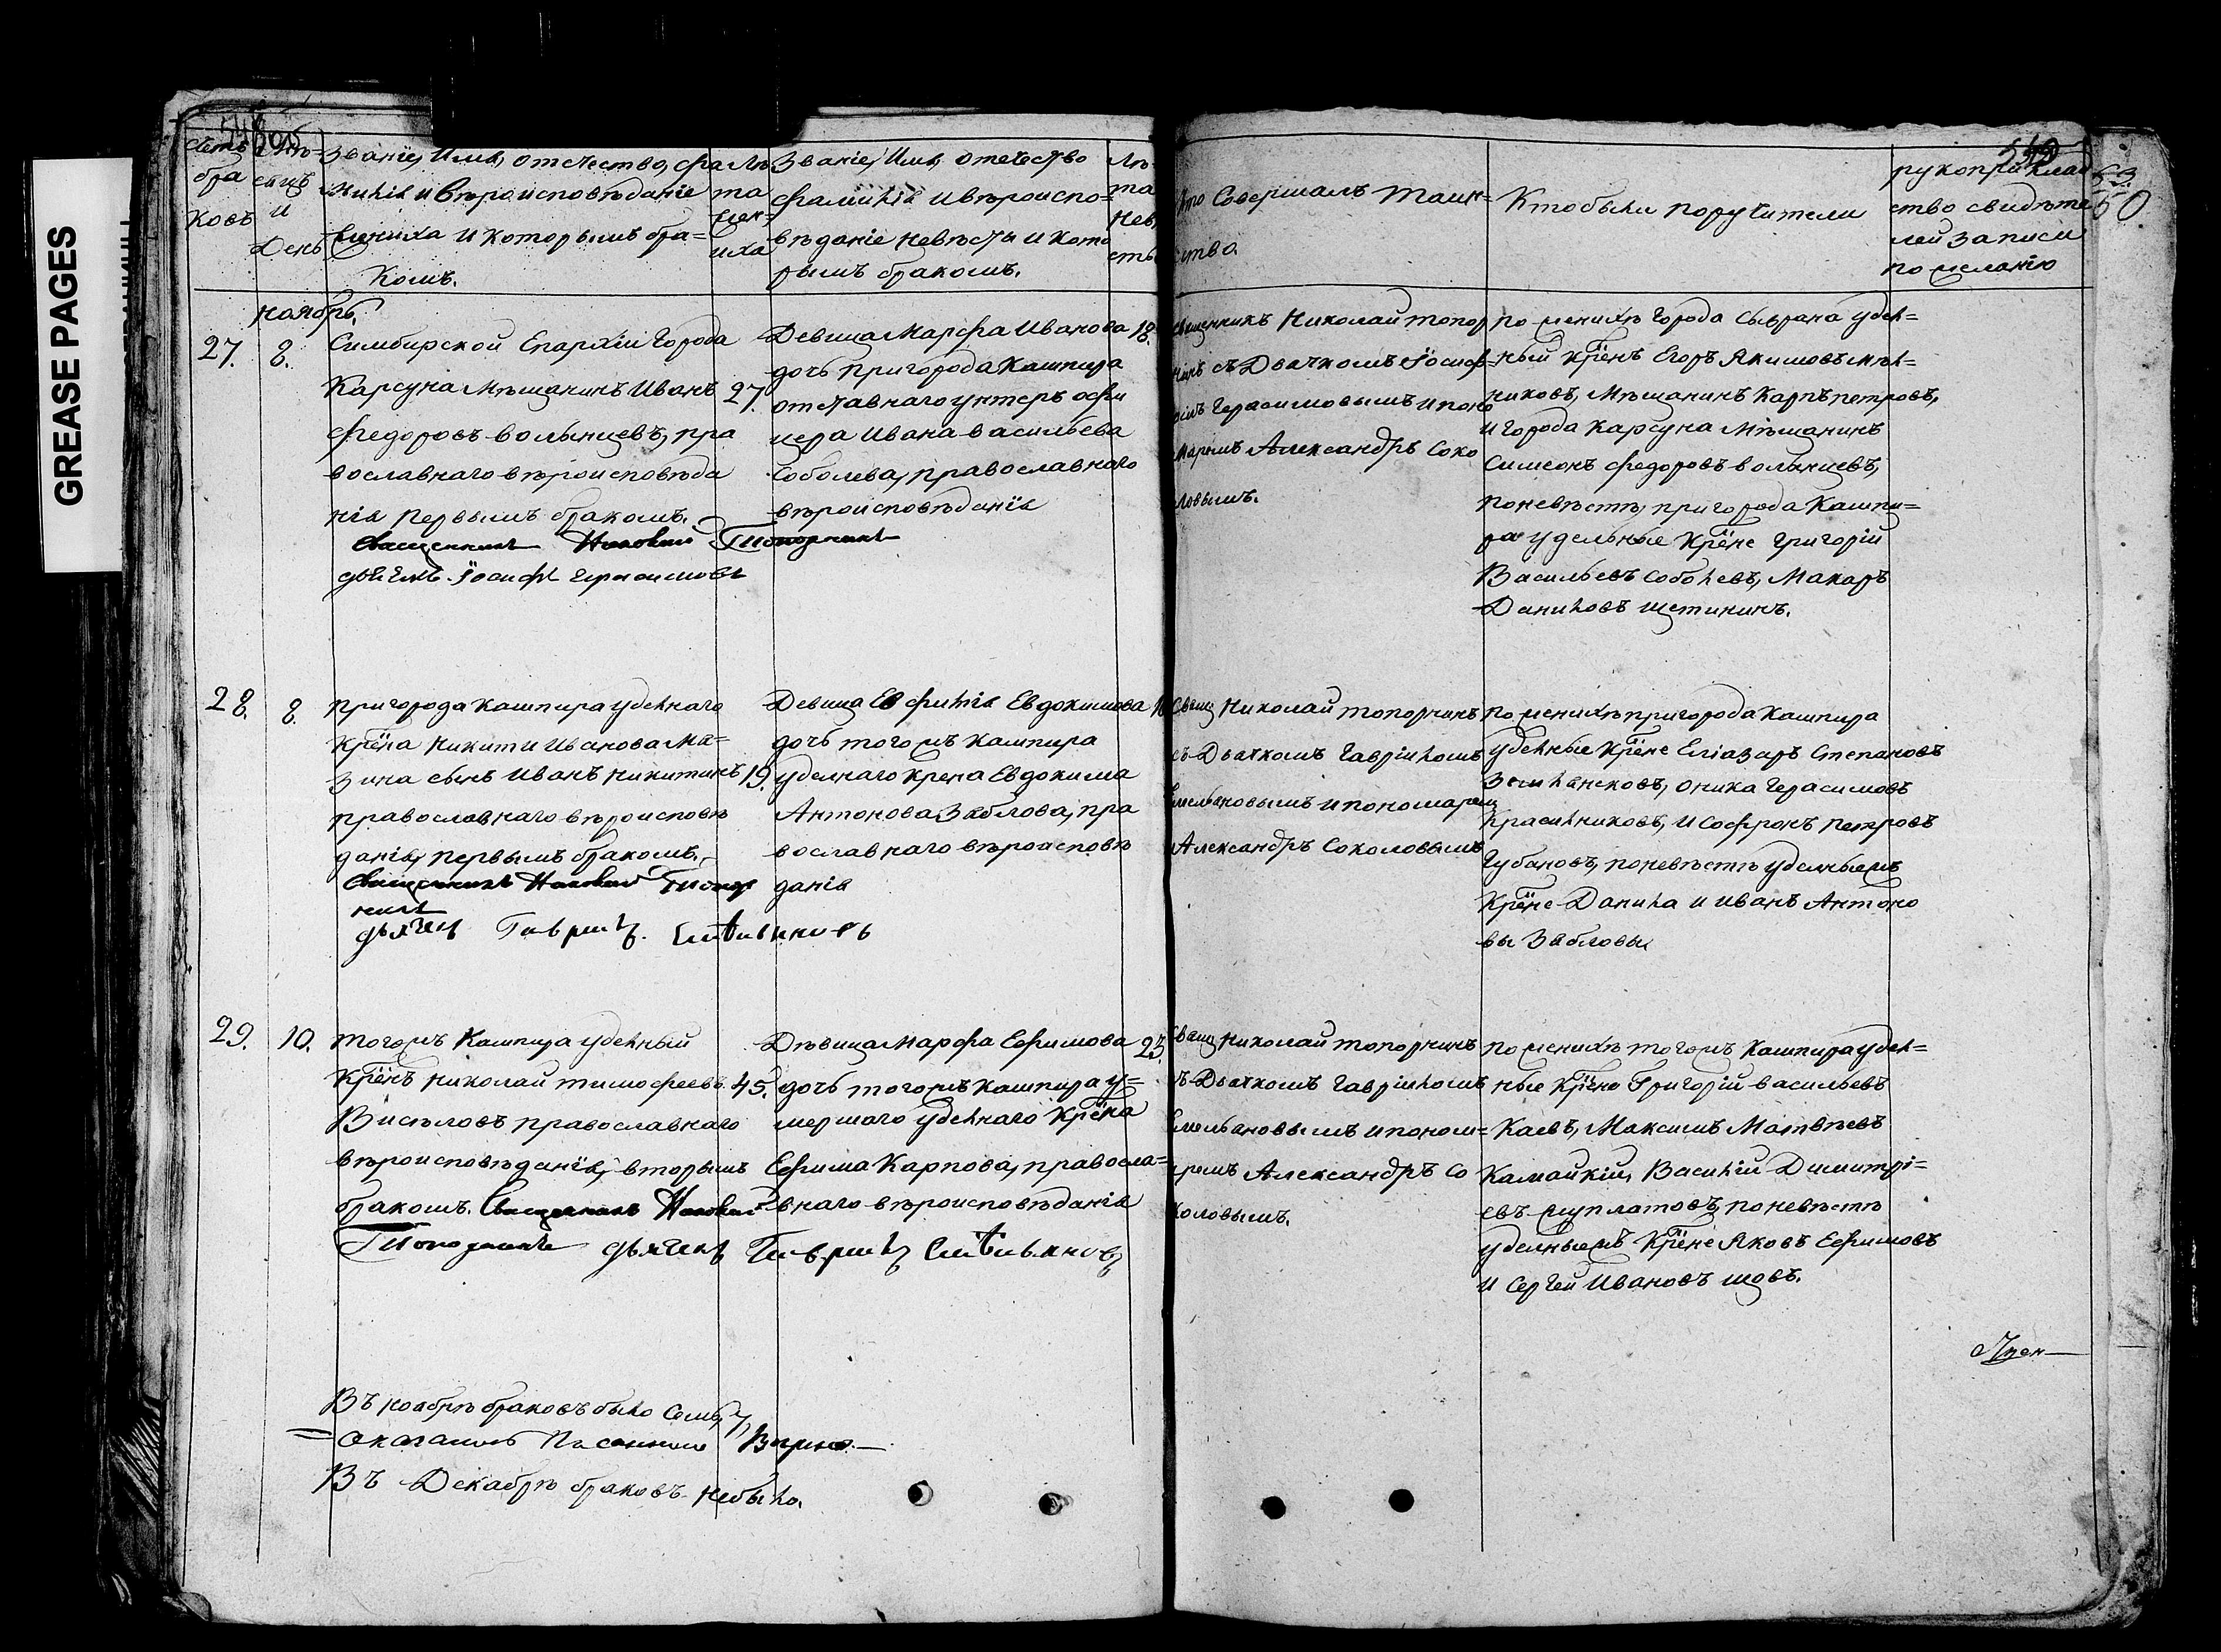 GREASE PAGES
548
549
53
50
Счетъ
бра
ковъ
Мѣ=
сяцъ
и
День
Званіе, Имя, отечество, фа
милія и вѣроисповѣданіе
жениха и которымъ бра=
комъ.
Лѣ
та
жен=
иха
Званіе, Имя, отечество
фамилія и вѣроиспо=
вѣданіе невѣсты и кото
рымъ бракомъ.
Лѣ
та
Нев,
сты
Кто Совершалъ Таин=
ство.
Кто были поручители
рукоприклад
ство свидѣте
лей записи
по желанію
ноябрь.
27.
8.
Симбирской Епархіи Города
Карсуна Мѣщанинъ Иванъ
Федоровъ Волынцевъ, пра
вославнаго вѣроисповѣда
нія первымъ бракомъ.
27.
Священникъ Николай Топорнинъ
дьячекъ Іосифъ Герасимовъ
Девица Марфа Иванова
дочь пригорода Кашпира
отставнаго унтеръ офи
цера Ивана Васильева
Соболева, православнаго
вѣроисповѣданія
18.
священникъ Николай топор
нинъ съ Дьячкомъ Іосиф=
омъ Герасимовымъ и поно
маремъ Александръ Соко
ловымъ.
по женихѣ города Сызрана удел=
ный крѐнъ Егоръ Якимовъ мѣл=
никовъ, Мѣщанинъ Карпъ петровъ,
и города Карсуна Мѣщанинъ
Симеонъ Федоровъ волынцевъ,
по невѣстѣ, пригорода Кашпи=
ра удельные крѐне Григорій
Васильевъ Соболевъ, Макаръ
Даниловъ щетининъ.
28.
8.
пригорода Кашпира уделнаго
крѐна Никити Иванова Ма=
зина сынъ Иванъ Никитинъ
православнаго вѣроисповѣ
данія, первымъ бракомъ.
19.
Священникъ Николай Топор
нинъ
дьячекъ Гаврилъ Емельяновъ
Девица Евфилія Евдокимова
дочь тогожъ кашпира
уделнаго крена Евдокима
Антонова Зяблова, пра
вославнаго вѣроисповѣ
данія
Свящ Николай топорнинъ
съ Дьячкомъ Гавріиломъ
Емельяновымъ и пономаремъ
Александръ Соколовымъ
по женихѣ пригорода Кашпира
уделные крѐне Еліазаръ Степановъ
Землянсковъ, Оника Герасимовъ
Красилниковъ, и Софронъ Петровъ
Губановъ, по невѣстѣ уделныежъ
крѐне Данила и Иванъ Антоно
вы Зябловы
29.
10.
тогожъ Кашпира уделный
крѐнъ Николай тимофеевъ
Висѣловъ православнаго
вѣроисповѣданія, вторымъ
бракомъ. Священникъ Николай
Топорнинъ дьячекъ Гаврилъ Емельяновъ
45.
Дѣвица Марфа Ефимова
дочь тогожъ кашпира у=
мершаго уделнаго крѐна
Ефима Карпова, правосла=
внаго вѣроисповѣданія
23.
Свящ Николай топорнинъ
съ Дьячкомъ Гавріиломъ
Емельяновымъ и поном=
аремъ Александръ Со
коловымъ.
по женихѣ тогожъ Кашпира удел=
ные крѐне Григорій васильевъ
Каевъ, Максимъ Матвѣевъ
Камайкій, Василій Димитрі=
евъ по невѣстѣ
уделныежъ крѐне Яковъ Ефимовъ
и Сергей Ивановъ шовъ.
Въ ноябрѣ браковъ было Семь, 7,
Верно.
Въ Декабрѣ браковъ небыло.